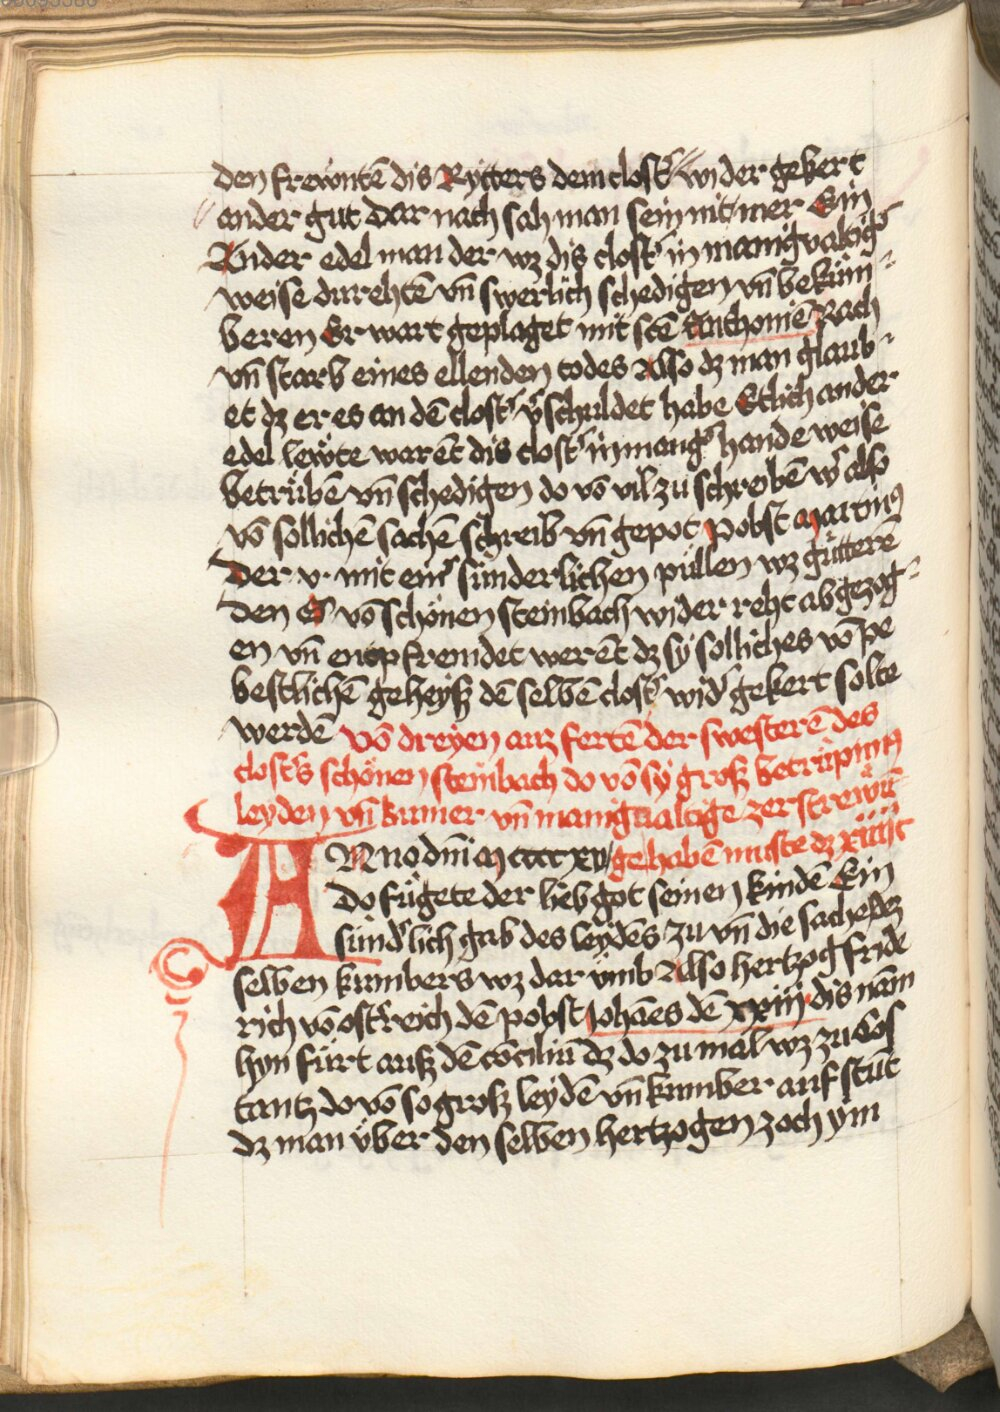 den frewntē dis Rytters dem clost᷑ wider gekert
ander gut dar nach sah man sein nit mer Ein
Ander edel man der wz dis clost᷑ in manigualtig᷑
weise durehtē vn̄ swerlich schedigen vn̄ beküm-
beren Er wart geplaget mit sctē Anthoniē Rach
vn̄ starb eines ellenden todes Also dz man glaub-
et dz er es an dē clost᷑ v᷑schuldet habe Etlich ander
edel lewte warēt dis clost᷑ in mang᷑ hande weise
betrübē vn̄ schedigen do vō vil zu schreibē w᷑ also
vō sollichē sachē schreib vn̄ gepot pobst martinꝰ
Der v· mit ein᷑ sünderlichen pullen wz gütterē
Den vō schönen steinbach wider reht ab gezog-
en vn̄ entpfremdet werēt dz sy solliches vō pe
bestlichē geheysz dē selbē clost᷑ wid᷑ gekert solte
werdē Vō dreyen auz fertē der swesterē des
clost᷑s schönen steinbach do vō sy grosz betrüpnuꝰ
leyden vn̄ kumer vn̄ manigualtige zerstrewūg
ANno dn̄i m cccc xv gehabē muste dz xviiij c
Do fügete der lieb got seinen kindē Ein
sünd᷑lich gab des leydēs zu vn̄ die sache dez
selben kumbers wz dar vmb Also hertzog fride
rich vō ost᷑reich dē pobst Johāes dē xxiij dis nām
hyn fürt ausz dē cōciliū dz do zu mal wz zu Cos
tantz do vō so grosz leydē vn̄ kumber auf stūt
dz man vber den selben hertzogen zoch ym